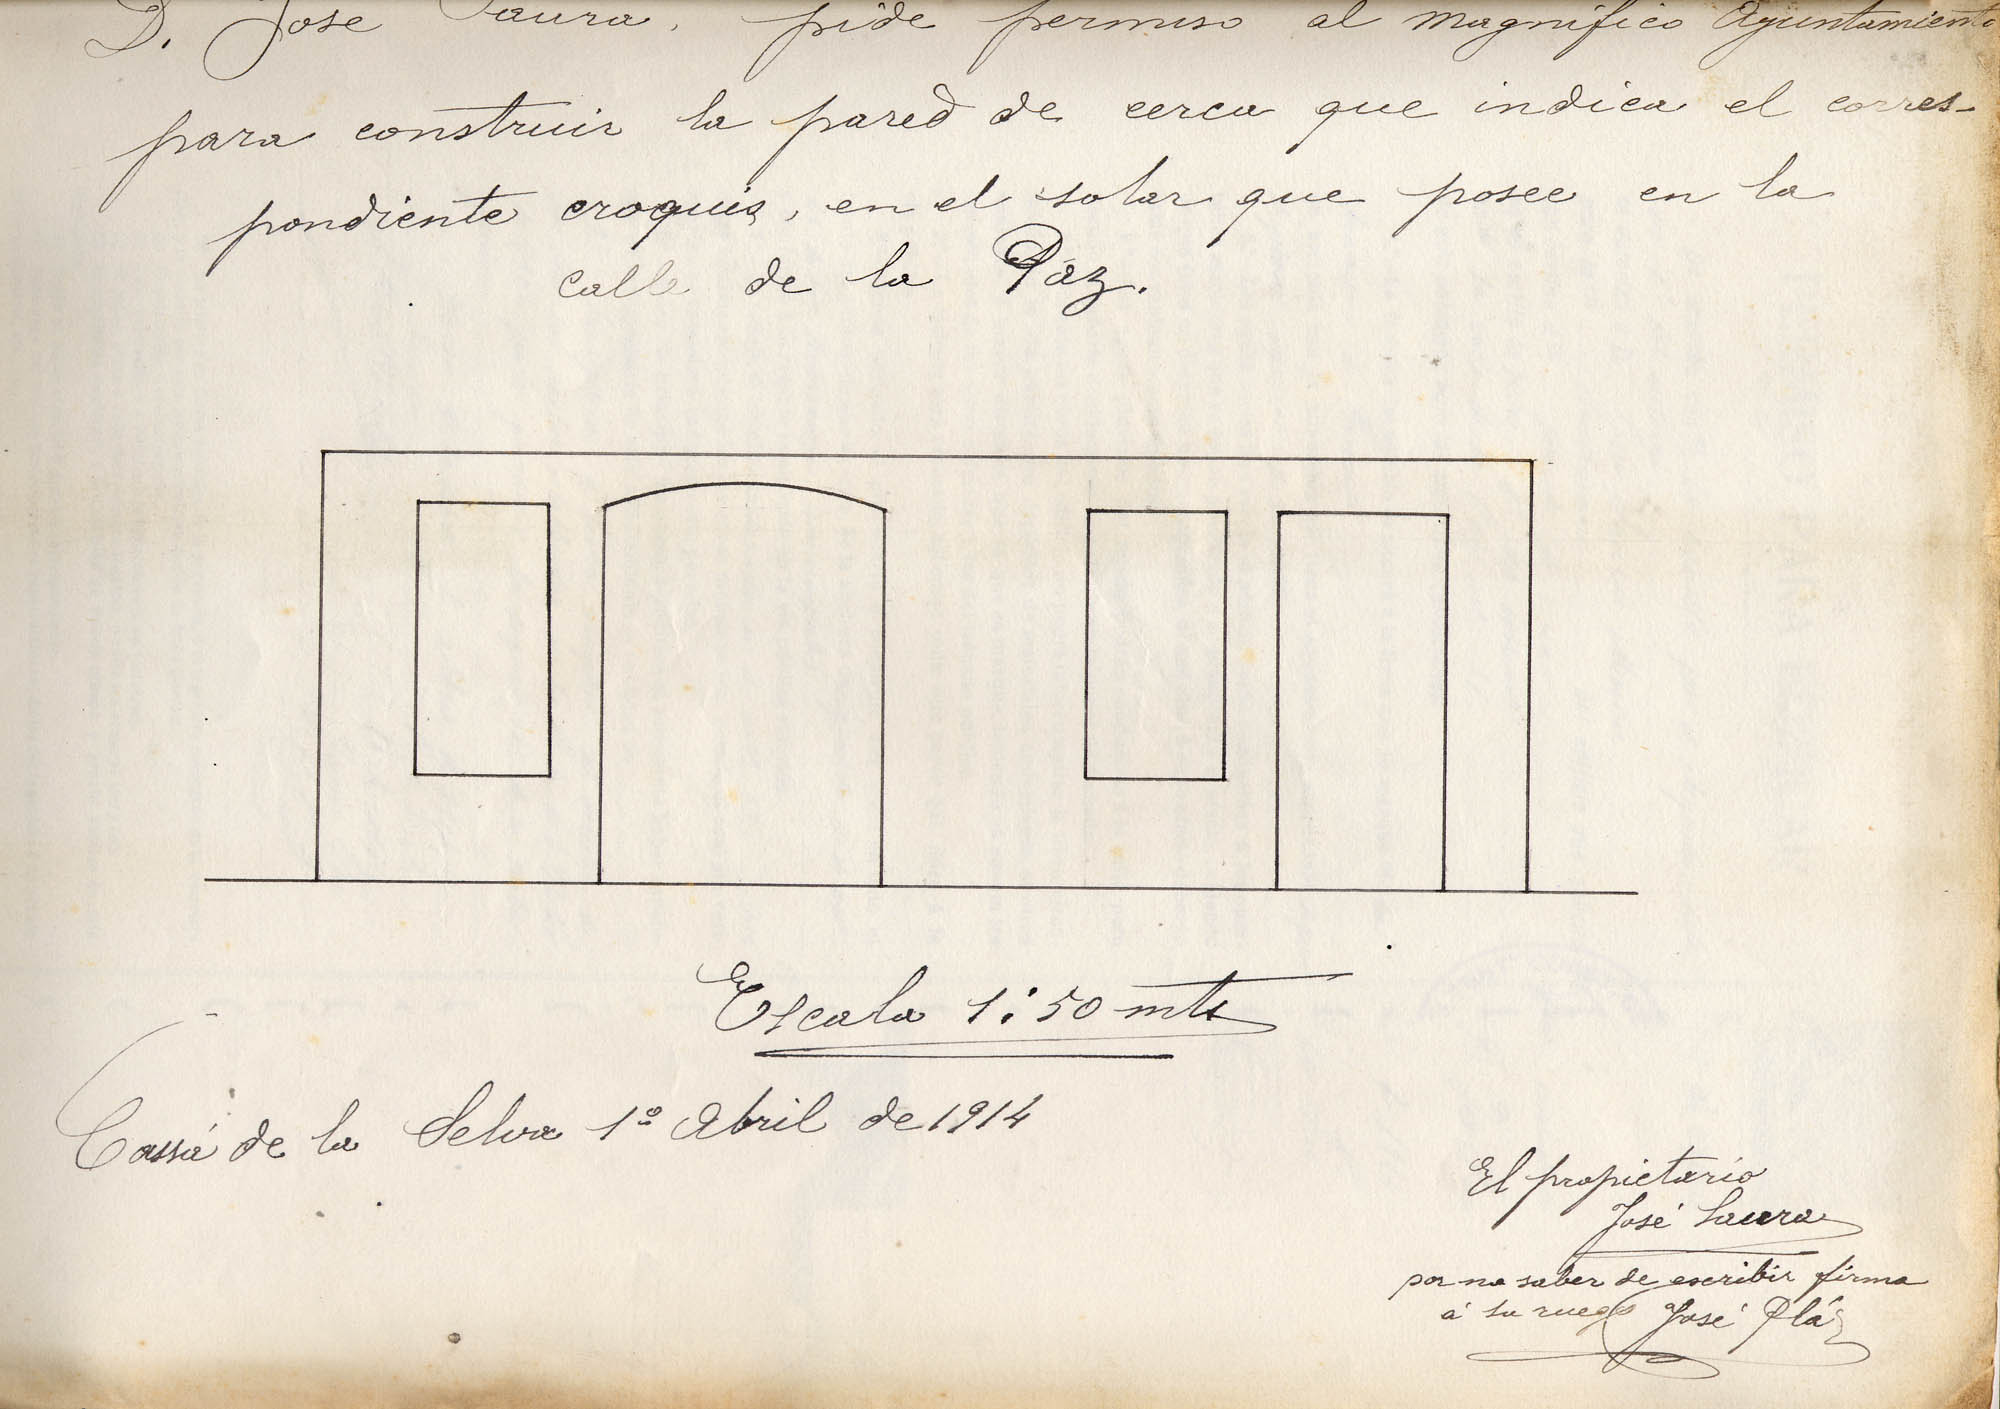 D. José Saura, pide permiso al magnífico Ayuntamiento
para construir la pared de cerca que indica el corres-
pondiente croquis, en el solar que posee en la
calle de la Paz.
Escala 1:50 mts
Cassá de la Selva 1º Abril de 1914
El propietario
José Saura
por no saber de escribir firma
á su ruego José Plá